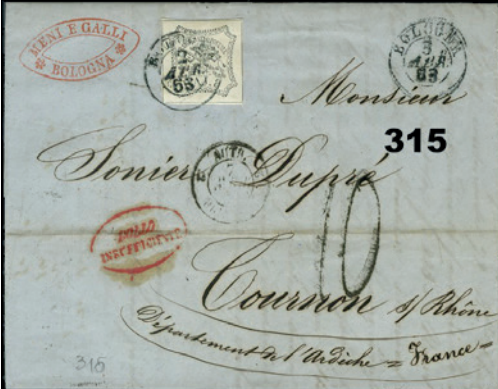 MENI E GALLI
BOLOGNA
BOLOGNA
APR
63
BOLOGNA
3
APR
63
Monsieur
315
Sonier Dupré
BOLLO
INSUFFICIENTE
10
Tournon s/ Rhône
Département de l'Ardèche = France =
315